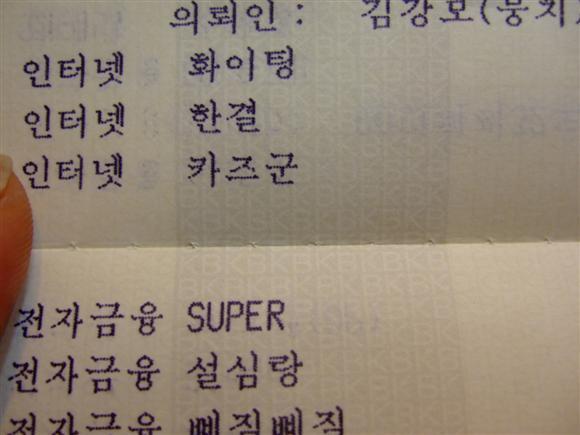 의뢰인 : 김강모(뭉치)
인터넷 화이팅
인터넷 한결
인터넷 카즈군
전자금융 SUPER
전자금융 설심랑
전자금융 삐질삐질